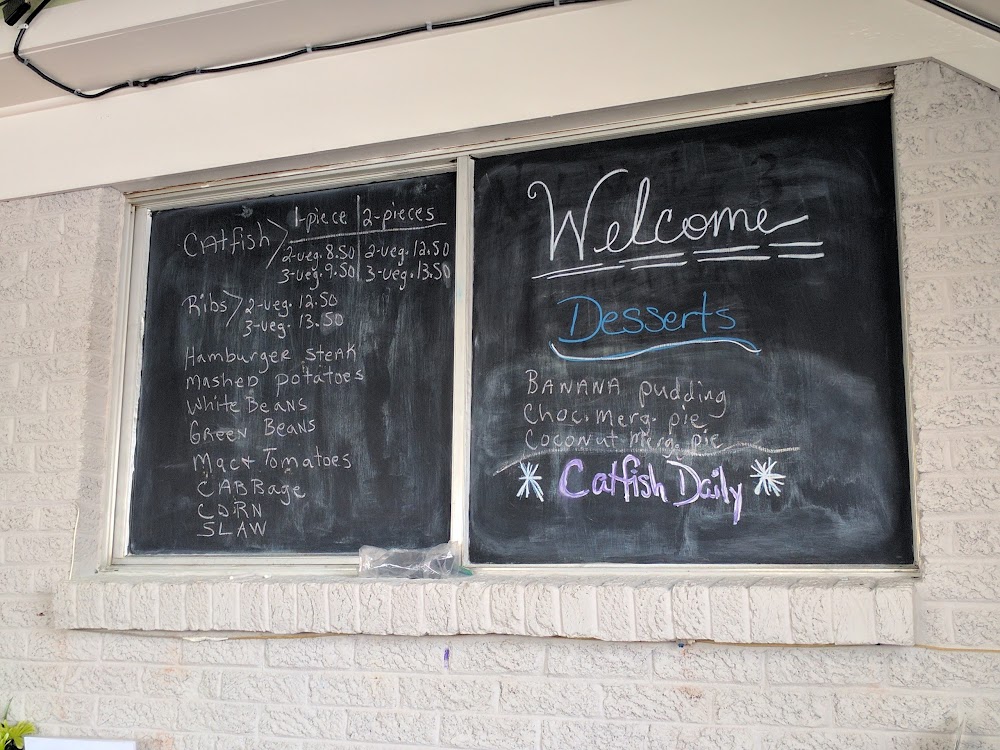 Catfish > 1-piece | 2-pieces
2-veg. 8.50 | 2-veg. 12.50
3-veg. 9.50 | 3-veg. 13.50
Ribs > 2-veg. 12.50
3-veg. 13.50
Hamburger Steak
Mashed Potatoes
White Beans
Green Beans
Mac & Tomatoes
CABBage
CORN
SLAW
Welcome
Desserts
BANANA pudding
Choc. Merg. pie
Coconut Merg. pie
Catfish Daily